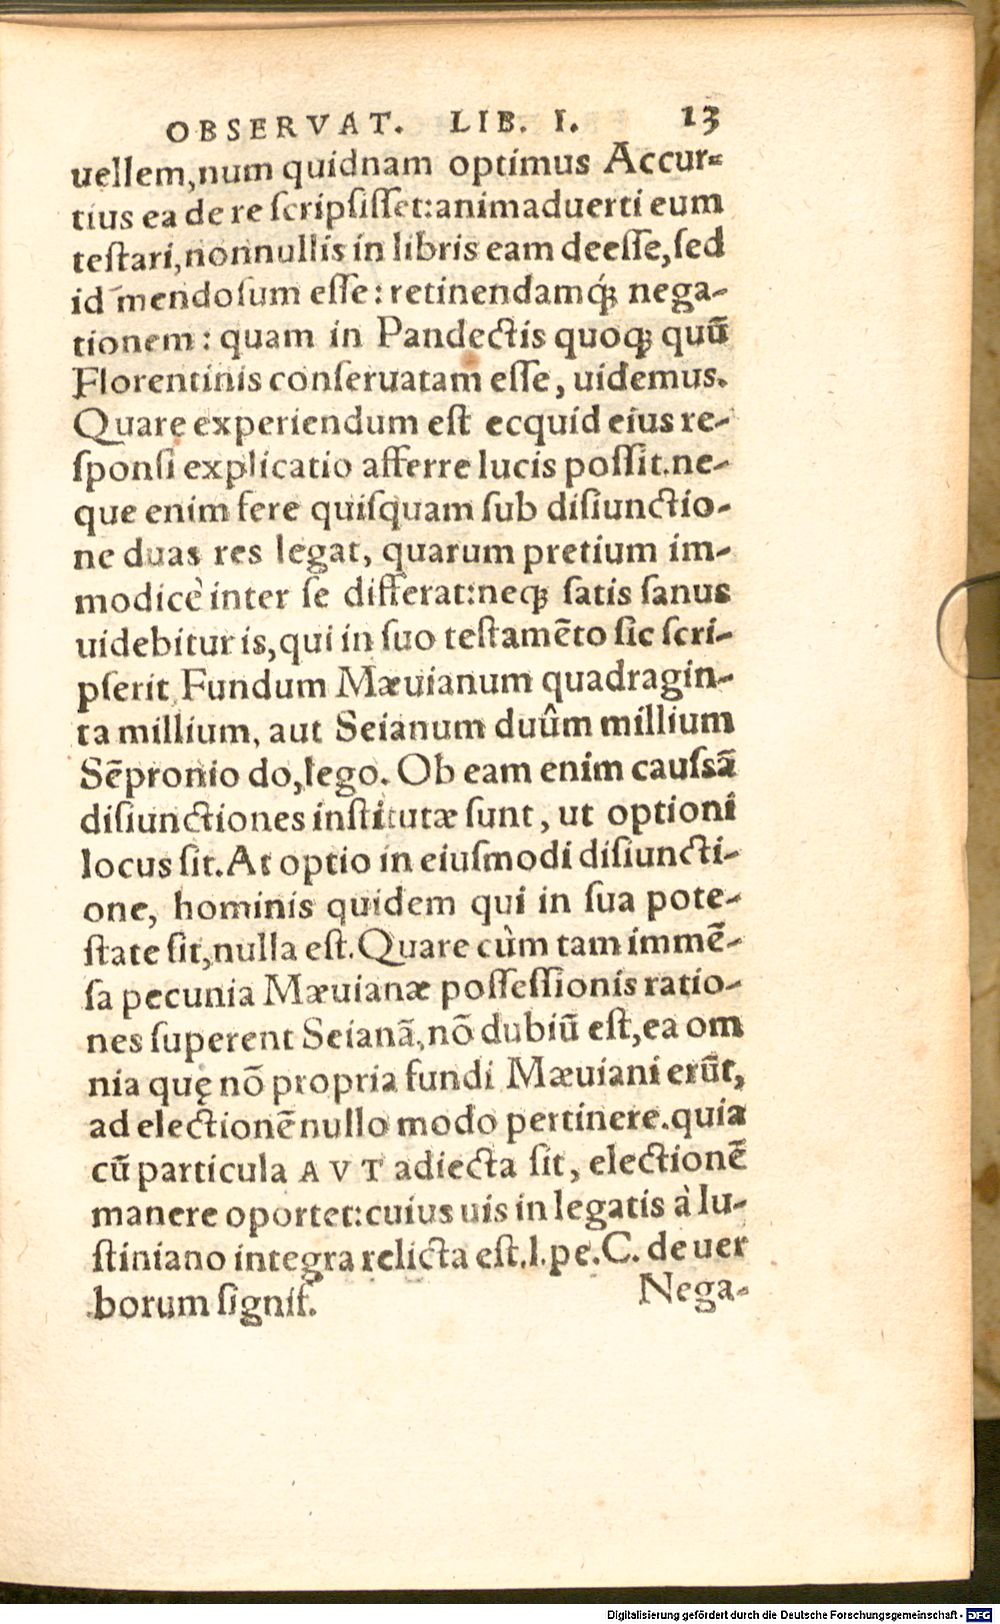 OBSERVAT. LIB. I. 13
uellem,num quidnam optimus Accur-
tius ea de re ſcripſiſſet:animaduerti eum
teſtari,nonnullis in libris eam deeſſe,ſed
id mendoſum eſſe: retinendamq́; nega-
tionem: quam in Pandectis quoq; quũ
Florentinis conſeruatam eſſe, uidemus.
Quare experiendum eſt ecquid eius re-
ſponſi explicatio afferre lucis poſſit.ne-
que enim fere quiſquam ſub diſiunctio-
ne duas res legat, quarum pretium im-
modicè inter ſe differat:neq; ſatis ſanus
uidebitur is,qui in ſuo teſtamẽto ſic ſcri-
pſerit Fundum Mæuianum quadragin-
ta millium, aut Seianum duûm millium
Sẽpronio do,lego. Ob eam enim cauſsã
diſiunctiones inſtitutæ ſunt, ut optioni
locus ſit.At optio in eiuſmodi diſiuncti-
one, hominis quidem qui in ſua pote-
ſtate ſit,nulla eſt.Quare cùm tam immẽ-
ſa pecunia Mæuianæ poſſeſſionis ratio-
nes ſuperent Seianã,nõ dubiũ eſt,ea om
nia quę nõ propria fundi Mæuiani erũt,
ad electionẽ nullo modo pertinere.quia
cũ particula AVT adiecta ſit, electionẽ
manere oportet:cuius uis in legatis à Iu-
ſtiniano integra relicta eſt.l.pe.C. de uer
borum ſignif.
Nega-
Digitalisierung gefördert durch die Deutsche Forschungsgemeinschaft - DFG